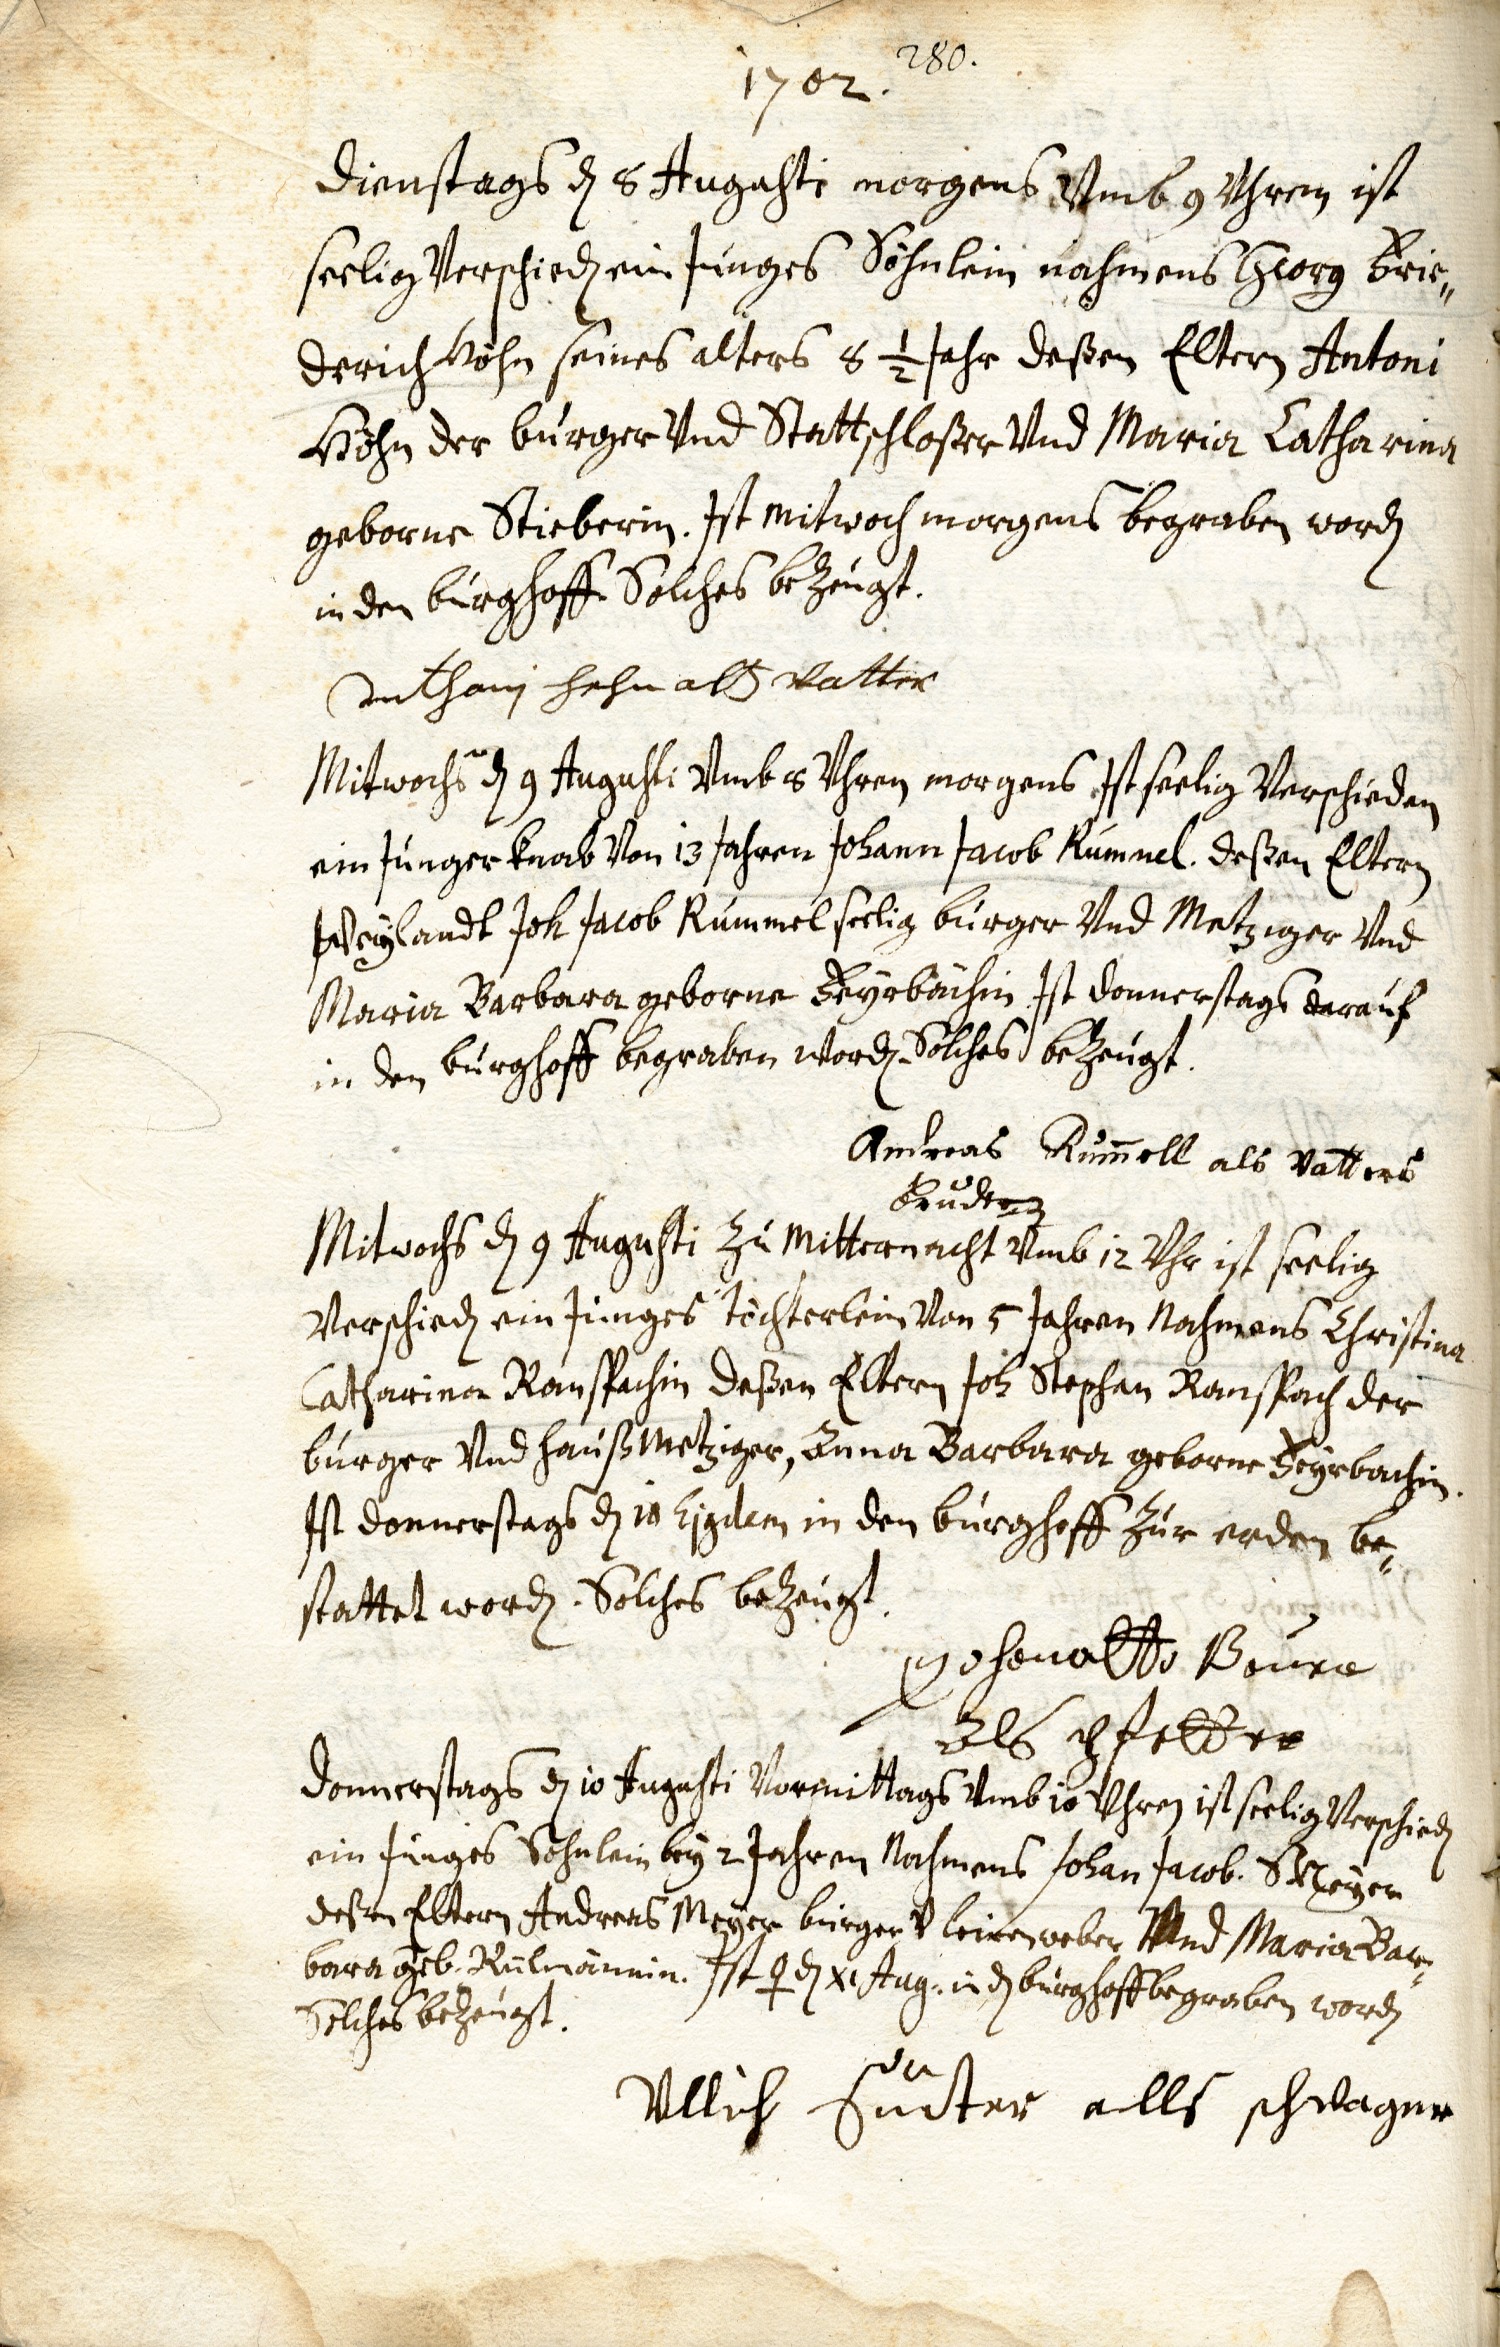 280.
1702.
Dienstags dẽ 8 Augusti morgens Vmb 9 Vhren ist
seelig Verschiedẽ ein Junges Söhnlein nahmens Georg Frie„
derich Höhn seines alters 8 1/2 Jahr deßen Eltern Antoni
Höhn der burger Vnd Stattschloßer Vnd Maria Catharina
geborne Stieberin. Ist Mitwoch morgens begraben wordẽ
in den burghoff. Solches beZeugt.
anthoni hehn alß Vatter
Mitwochs dẽ 9 Augusti Vmb 8 Vhren morgens Ist seelig Verschieden
ein Junger knab Von 13 Jahren Johann Jacob Rummel. deßen Eltern
Weylandt Joh Jacob Rummel seelig burger Vnd Metziger Vnd
Maria Barbara geborne Feyrbachin Ist donnerstags darauf
in den burghoff begraben wordẽ. Solches beZeugt.
Andreas Rum̅ell als Vatters
Bruder
Mitwochs dẽ 9 Augusti Zu Mitternacht Vmb 12 Vhr ist seelig
Verschiedẽ ein Junges töchterlein Von 5 Jahren Nahmens Christina
Catharina Ranspachin deßen Eltern Joh Stephan Ranspach der
burger Vnd haußMetziger, Anna Barbara geborne Feyrbachin.
Ist donnerstags dẽ 10 Ejusdem in den burghoff Zur erden be„
stattet wordẽ. Solches beZeugt.
Als pfetter
Donnerstags dẽ 10 Augusti Vormittags Vmb 10 Vhren ist seelig Verschiedẽ
ein Junges Söhnlein bey 2 Jahren Nahmens Johan Jacob. Meyer
deßen Eltern Andreas Meyer burger V leinenweber Vnd Maria Bar„
bara geb. Rulmännin. Ist ♀ dẽ XI Aug. in dẽ burghoff begraben wordẽ
Solches beZeugt.
Vllich Suter alls schwager